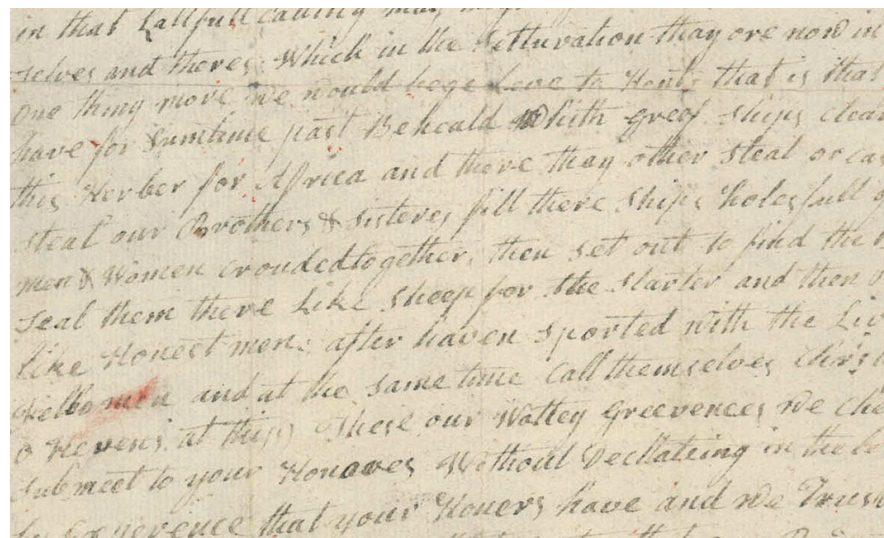 in that Lallfull calling
selves and theres Which in the Setturvation thay ore now in
One thing more we would bege Leve to Hont that is that
have for Sumtime past Beheald whith greef Ships clear
this Herber for Africa and there thay other steal or
steal our Brothers & Sisteres fill there Ships holes full
men & Women croudedtogether, then set out to find the
Seal them there Like Sheep for the Slarter and then
like Honest men: after haven Sported with the
fellow men and at the Same time Call themselves
o Hevens at this) These our Wattey Greevences we
Submeet to your Honores Without Decllateing in the
by Experence that your Honers have and we Trust